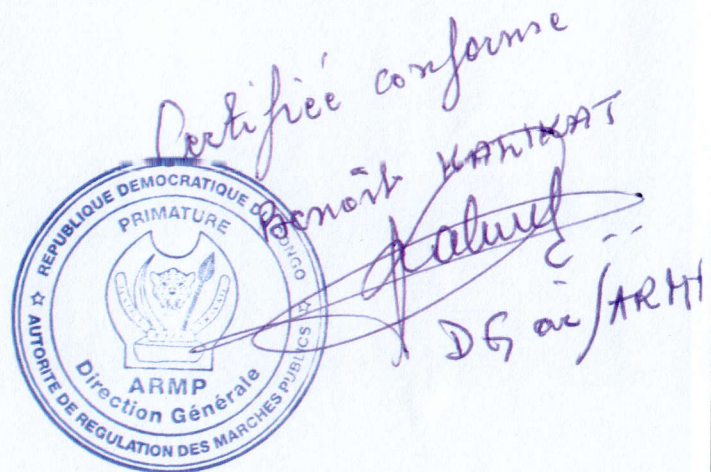 Certifiée conforme
Benoît KALIKAT
DG ai/ARMP
REPUBLIQUE DEMOCRATIQUE DU CONGO
PRIMATURE
ARMP
Direction Générale
AUTORITE DE REGULATION DES MARCHES PUBLICS